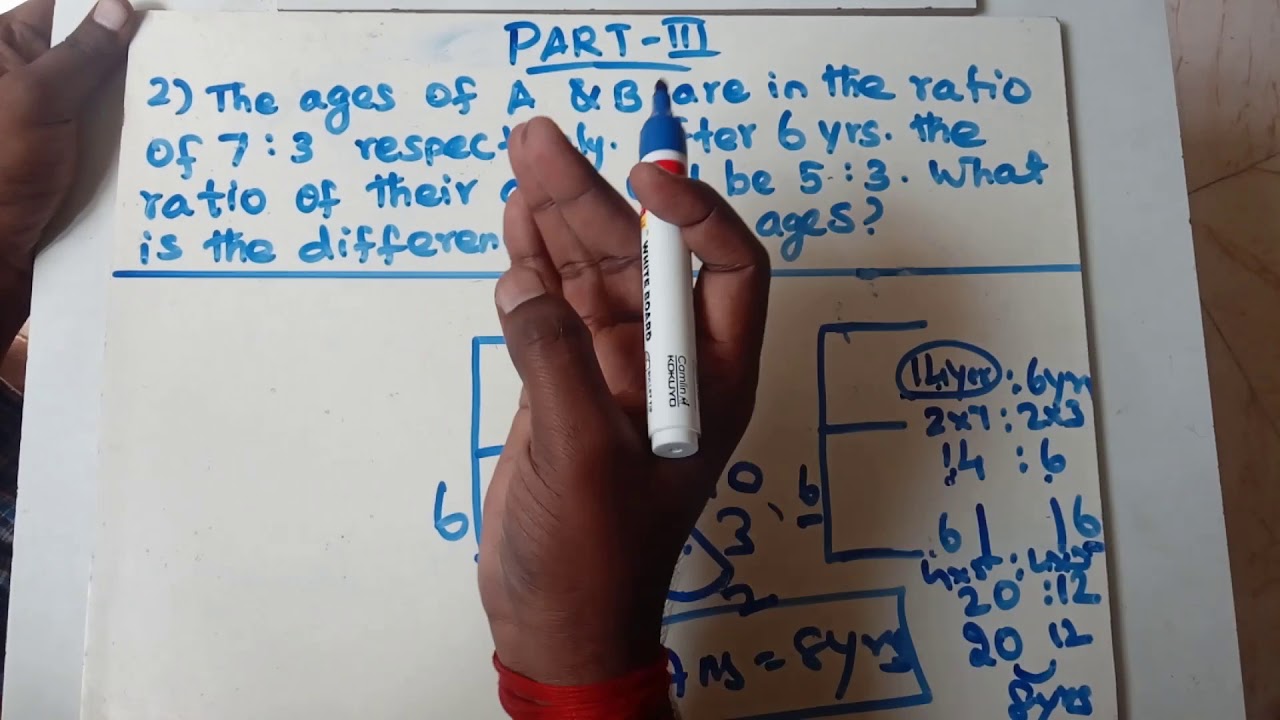 PART-III
2) The ages of A & B are in the ratio
of 7:3 respect ly. fter 6 yrs. the
ratio of their be 5:3. What
is the differen ages?
14yrs : 6yrs
2x7 : 2x3
14 : 6
6 6
20 : 12
20 12
8yrs
6
10
3, 6
2
Ans = 8yrs
WHITE BOARD
Camlin
KOKUYO